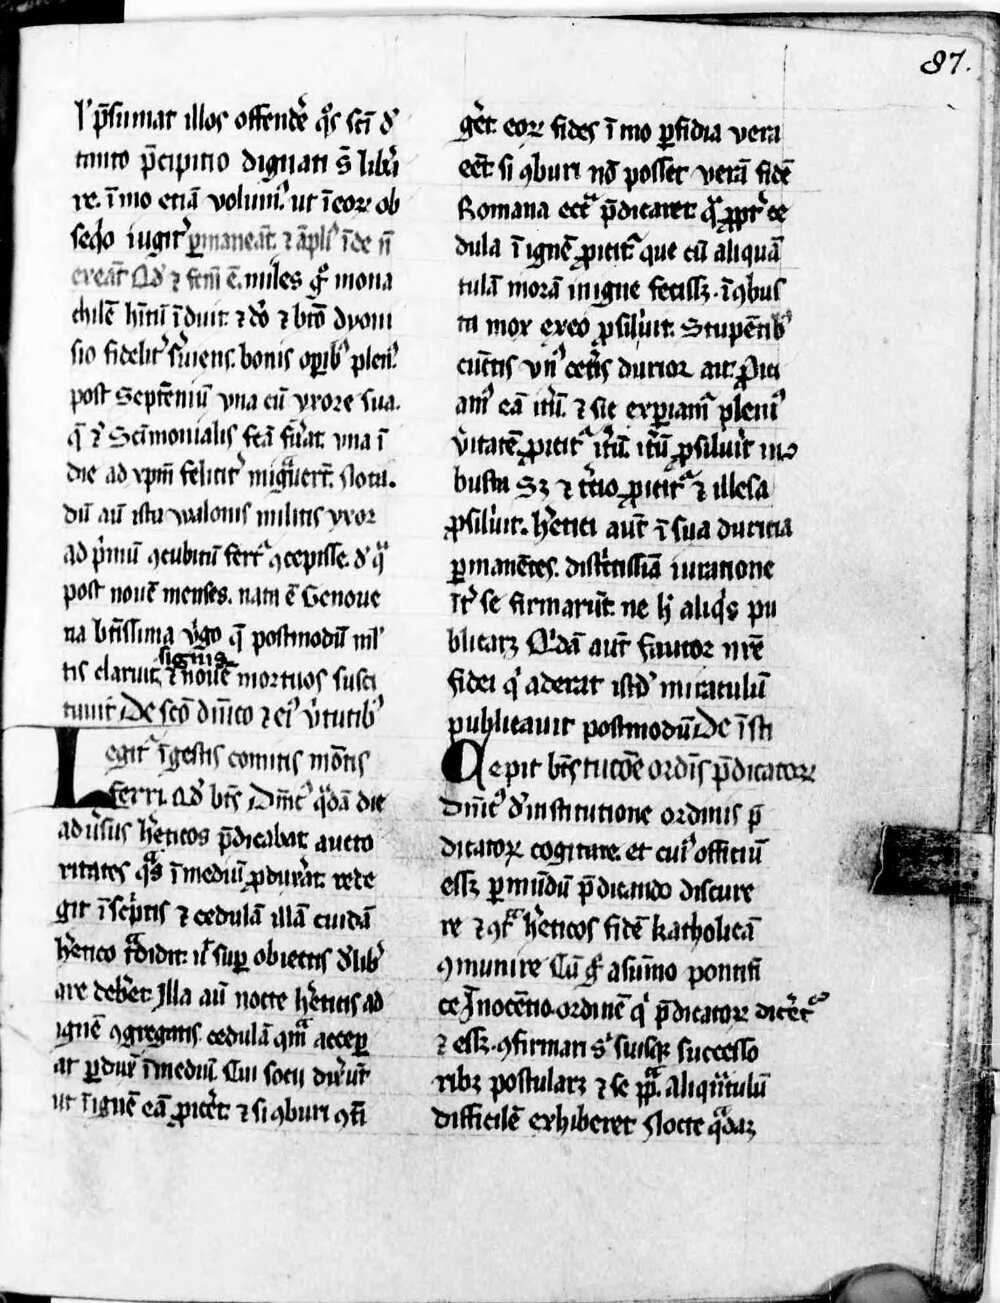 87.
l' p̄sumat illos offendē q̊s scī d'
tanto p̄cipitio dignati s̄ libe
re. īmo etiā volunt' ut ī eoꝝ ob
seq̊o iugit' ꝑmaneāt. ⁊ āpli' īde ñ
exeāt
miles g̊ mona
chilē h̄itū īduit. ⁊ d̊o ⁊ bt̄o dyoni
sio fidelit' s'uiens. bonis oꝑib' plen'.
post Septēniū vna cū vxore sua.
q̄ ⁊ Sc̄imonialis fc̄a fu'at. vna ī
die ad xpm̄ felicit' mig̊uert̄. Nota.
dū aū ista walonis militis vxor
ad p'mū ꝯcubitū fert' ꝯcepisse. ⁊ q̊
post nouē menses. nata ē Genoue
na bt̄issima v'go q̄ postmodū ml'
signis
tis claruit, ⁊ nouē mortuos susci
tauit De sc̄o dn̄ico ⁊ ei' v'tutib'
Legit' ī gestis comitis mōtis
ferri. Qd' bt̄s Dn̄ic' q̊dā die
adu'sus h'eticos p̄dicabat. aucto
ritates q̊s ī mediū ꝓdux'at. rede
git ī sc'ptis ⁊ cedulā illā cuidā
h'etico t̊didit. ut suꝑ obiectis d'lib'
are deb'et. Illa aū nocte h'eticis ad
ignē ꝯgregatis. cedulā qm̊ accep
at ꝓdux' ī mediū. Cui socii dix'ut̄
ut ī ignē eā ꝓic'et. ⁊ si ꝯburi ꝯti
g'et. eoꝝ fides īmo ꝑfidia vera
eet̄ si ꝯburi nō posset verā fidē
Romana ecc̄a p̄dicaret. q̊ ꝓpt' ce
dula ī ignē ꝓicit' que cū aliquā
tulā morā in igne fecissꝫ. īꝯbus
ta mox ex eo ꝓsiliuit. Stupētib'
cūctis vn' cet'is durior ait. ꝓici
am' eā it'ū. ⁊ sic exꝑiam' pleni'
v'itatē. ꝓicit' it'ū. it'ū ꝓsiluit in
busta Sꝫ ⁊ t'cio ꝓicit' ⁊ illesa
ꝓsiliuit. h'etici aut̄ ī sua duricia
ꝑmanētes. dist'ctissīa iuratione
It' se firmarūt. ne h̊ aliq̊s pu
blicarꝫ Q'dā aut̄ fautor nr̄e
fidei q' aderat istd' miraculū
publicauit postmodū. De īsti
Cepit bt̄s tucōe ordīs p̄dicatoꝝ
Dn̄ic' d' institutione ordinis p̄
dicatoꝝ cogitare. et cui' officiū
essꝫ ꝑ mūdū p̄dicando discure
re ⁊ ꝯt̊ h'eticos fidē katholicā
ꝯmunire Cū g̊ a sūmo pontifi
ce Inocētio. ordinē q' p̄dicatoꝝ dic'et'
⁊ essꝫ. ꝯfirmari s' suisqꝫ successo
ribꝫ postularꝫ ⁊ se pp̊ aliq̊ntulū
difficilē exhiberet Nocte q̊daꝫ